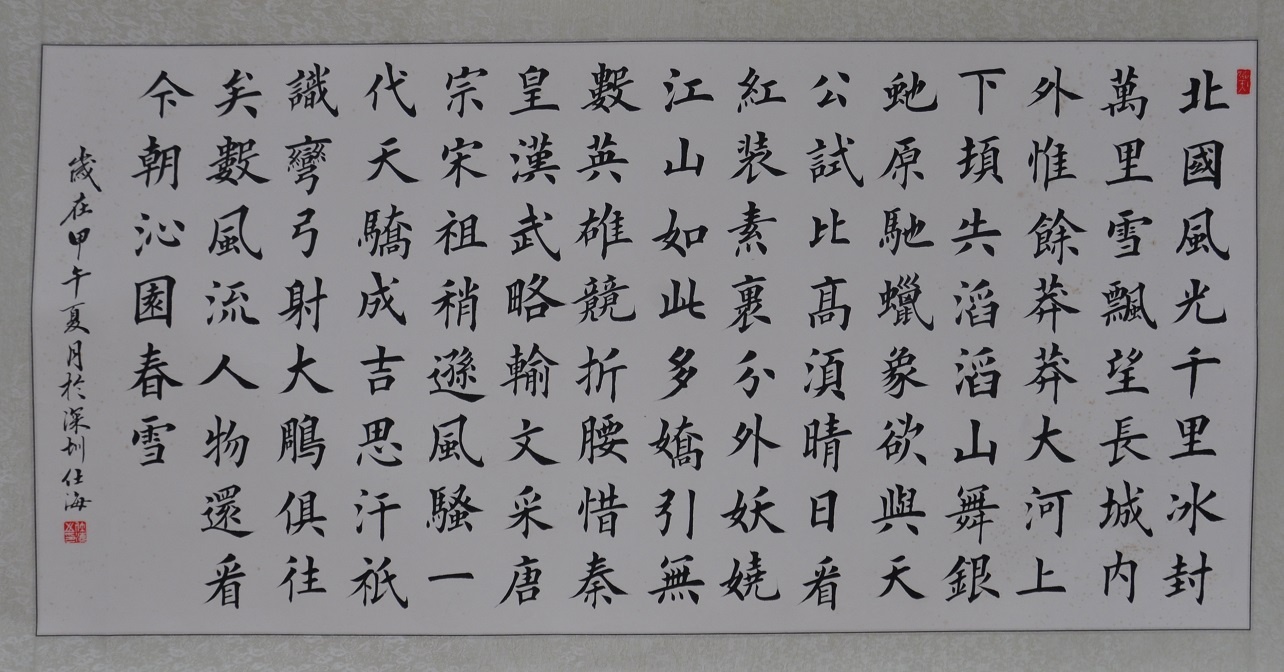 北國風光千里冰封
萬里雪飄望長城内
外惟餘莽莽大河上
下頓失滔滔山舞銀
虵原馳蠟象欲與天
公試比髙湏晴日看
紅装素裹分外妖嬈
江山如此多嬌引無
數英雄競折腰惜秦
皇漢武略輸文采唐
宗宋祖稍遜風騷一
代天驕成吉思汗祇
識彎弓射大鵰俱往
矣數風流人物還看
今朝沁園春雪
歲在甲午夏月於深圳仕海